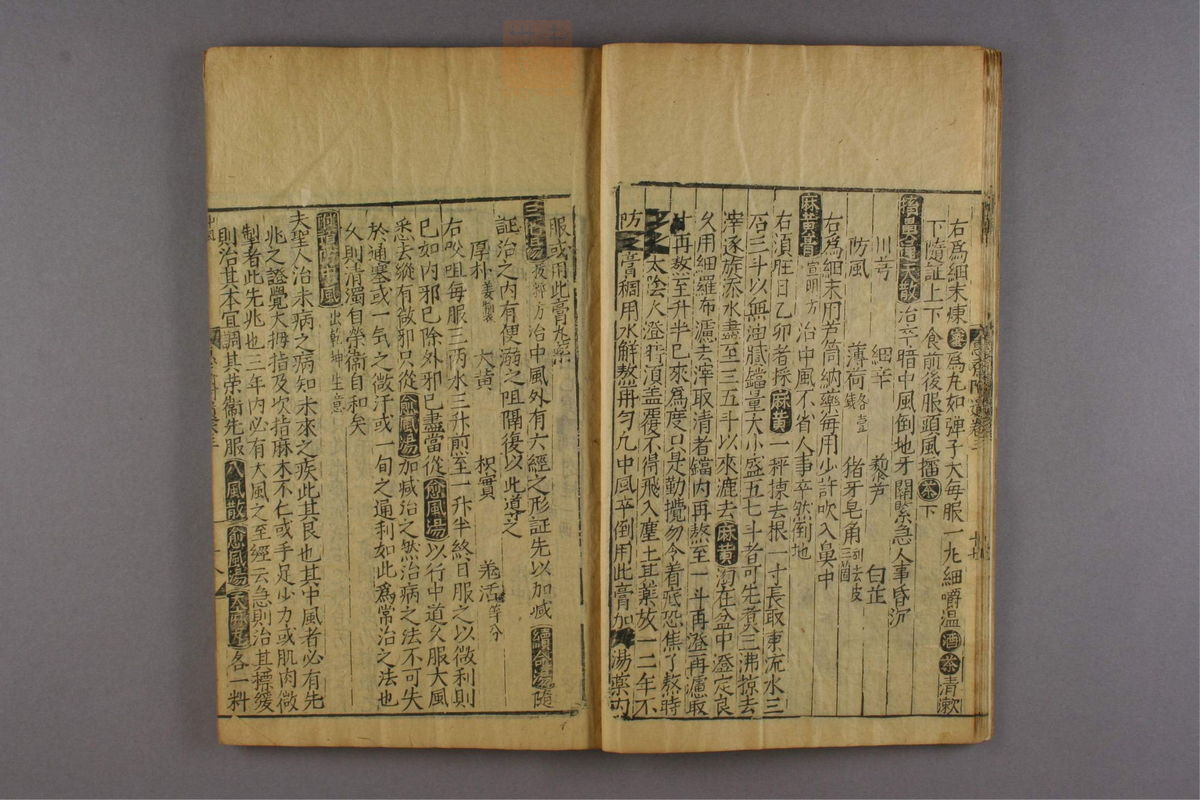 右爲細末煉蜜爲丸如彈子大每服一丸細嚼温酒茶清漱
下隨証上下食前後服頭風擂茶下
治卒暗中風倒地牙關緊急人事昏沉
川芎 細辛 藜芦 白芷
防風 薄荷 猪牙皂角三箇去皮
右爲細末用芦筒納藥每用少許吹入鼻中
麻黄膏宣明方治中風不省人事卒然倒地
右須旺日乙卯者採麻黄一秤揀去根一寸長取東流水三
石三斗以無油膩鐺量大小盛五七斗者可先煮三沸掠去
滓逐旋添水盡至三五斗以來漉去麻黄在盆中澄定良
久用細羅布濾去滓取清者鐺内再熬至一斗再澄再濾取
汁再熬至升半已來爲度只是勤攪勿令着底恐焦了熬時
太陰人澄行須盖覆不得飛入塵土其藥放一二年不
防膏稠用水解熬再匀凡中風卒倒用此膏加湯藥内
服或用此膏丸藥
三化湯拔粹方治中風外有六經之形証先以加减續命湯隨
証治之内有便溺之阻隔復以此導之
厚朴姜製 大黄 枳實 羌活等分
右㕮咀每服三两水三升煎至一升半終日服之以微利則
已如内邪已除外邪已盡當從愈風湯以行中道久服大風
悉去縱有微邪只從愈風湯加减治之然治病之法不可失
於通塞或一氣之微汗或一旬之通利如此爲常治之法也
久則清濁自榮衛自和矣
預防中風出乾坤生意
夫聖人治未病之病知未來之疾此其良也其中風者必有先
兆之證覺大拇指及次指麻木不仁或手足少力或肌肉微
製者此先兆也三年内必有大風之至經云急則治其標緩
則治其本宜調其荣衛先服八風散愈風湯天麻丸各一料